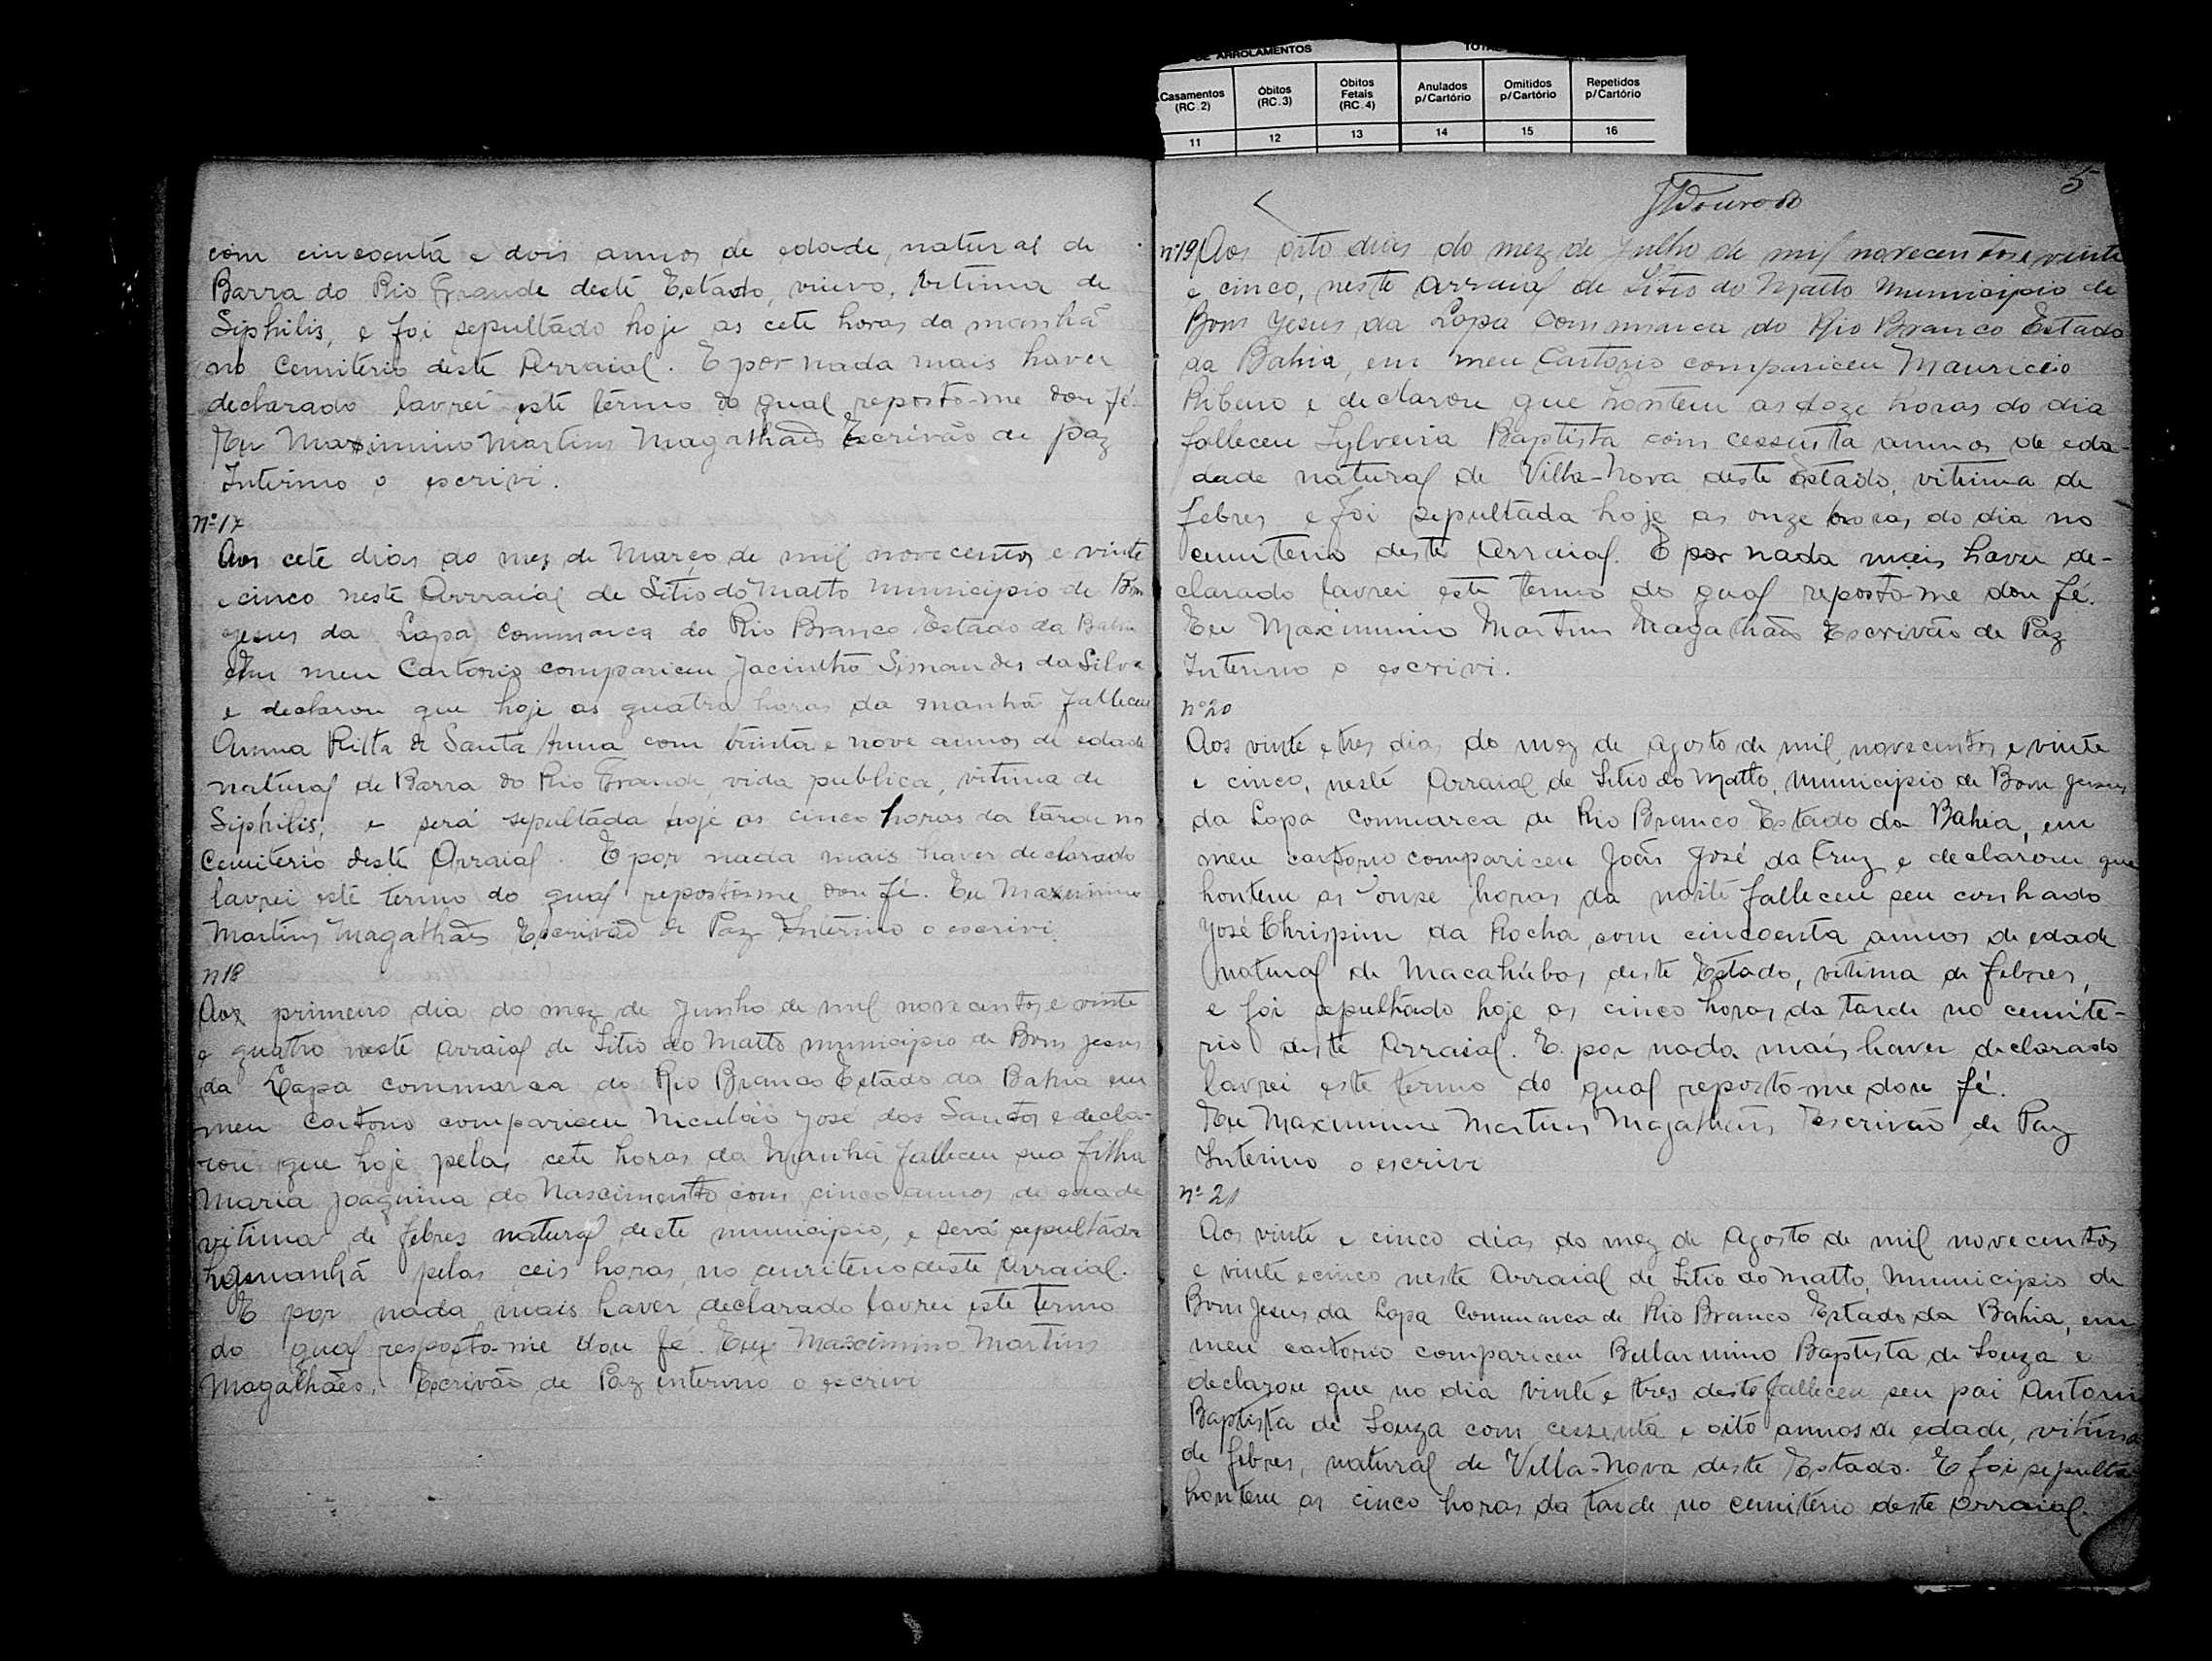 DE ARROLAMENTOS
Casamentos (RC.2) Óbitos (RC.3) Óbitos Fetais (RC.4) Anulados p/Cartório Omitidos p/Cartório Repetidos p/Cartório
11 12 13 14 15 16
com cincoenta e dois annos de edade, natural de
Barra do Rio Grande deste Estado, viuvo, vitima de
Siphilis, e foi sepultado hoje as cete horas da manhã
no Cemiterio deste Arraial. E por nada mais haver
declarado lavrei este termo do qual reposto-me dou fé.
Eu Maximino Martins Magalhães Escrivão de paz
Interino o escrivi.
nº 17
Aos cete dias do mez de Março de mil novecentos e vinte
e cinco neste Arrraial de Sitio do Matto municipio de Bom
Jesus da Lapa Commarca do Rio Branco Estado da Bahia
em meu Cartorio compariceu Jacintho Simandes da Silva
e declarou que hoje as quatro horas da manhã falleceu
Anna Ritta de Santa Anna com trinta e nove annos de edade
natural de Barra do Rio Grande, vida publica, vitima de
Siphilis, e será sepultada hoje as cinco horas da tarde no
Cemiterio deste Arraial. E por nada mais haver declarado
lavrei este termo do qual reposto-me dou fé. Eu Maximino
Martins Magalhães Escrivão de Paz Interino o escrivi.
n 18
Aos primeiro dia do mez de Junho de mil novecentos e vinte
e quatro neste arraial de Sitio do Matto municipio de Bom Jesus
da Lapa commarca do Rio Branco Estado da Bahia em
meu Cartorio compariceu Niculáo José dos Santos e decla-
rou que hoje pelas cete horas da Manhã falleceu sua filha
Maria Joaquina do Nascimento com cinco annos de edade
vitima de febres natural deste municipio, e será sepultada
manhã pelas ceis horas no cemiterio deste Arraial.
E por nada mais haver declarado lavrei este termo
do qual resposto-me dou fé. Eu Maximino Martins
Magalhães, Escrivão de Paz interino o escrivi
5
nº 19 Aos oito dias do mez de Julho de mil novecentos e vinte
e cinco, neste Arraial de Sitio do Matto Municipio de
Bom Jesus da Lapa Commarca do Rio Branco Estado
da Bahia, em meu Cartorio compariceu Mauricio
Ribeiro e declarou que hontem as doze horas do dia
falleceu Sylveria Baptista com cessenta annos de eda-
dade natural de Villa-Nova deste Estado, vitima de
febres e foi sepultada hoje as onze horas do dia no
cemiterio deste Arraial. E por nada mais haver de-
clarado lavrei este termo do qual reposto-me dou fé.
Eu Maximino Martins Magalhães Escrivão de Paz
Interino o escrivi.
nº 20
Aos vinte e tres dias do mez de Agosto de mil novecentos e vinte
e cinco, neste Arraial de Sitio do Matto, municipio de Bom Jesus
da Lapa Commarca de Rio Branco Estado da Bahia, em
meu cartorio compariceu João José da Cruz e declarou que
hontem as onse horas da noite falleceu seu cunhado
José Chrispim da Rocha, com cincoenta annos de edade
natural de Macahúbas deste Estado, vitima de febres,
e foi sepultado hoje as cinco horas da tarde no cemite-
rio deste Arraial. E por nada mais haver declarado
lavrei este termo do qual reposto-me dou fé.
Eu Maximino Martins Magalhães Escrivão de Paz
Interino o escrivi
nº 21
Aos vinte e cinco dias do mez de Agosto de mil novecentos
e vinte e cinco neste Arraial de Sitio do Matto, Municipio de
Bom Jesus da Lapa Commarca de Rio Branco Estado da Bahia, em
meu cartorio compariceu Bellarmino Baptista de Souza e
declarou que no dia vinte e tres deste falleceu seu pai Antoni
Baptista de Souza com cessenta e oito annos de edade, vitima
de febres, natural de Villa-Nova deste Estado. E foi sepulta
hontem as cinco horas da tarde no cemiterio deste arraial.